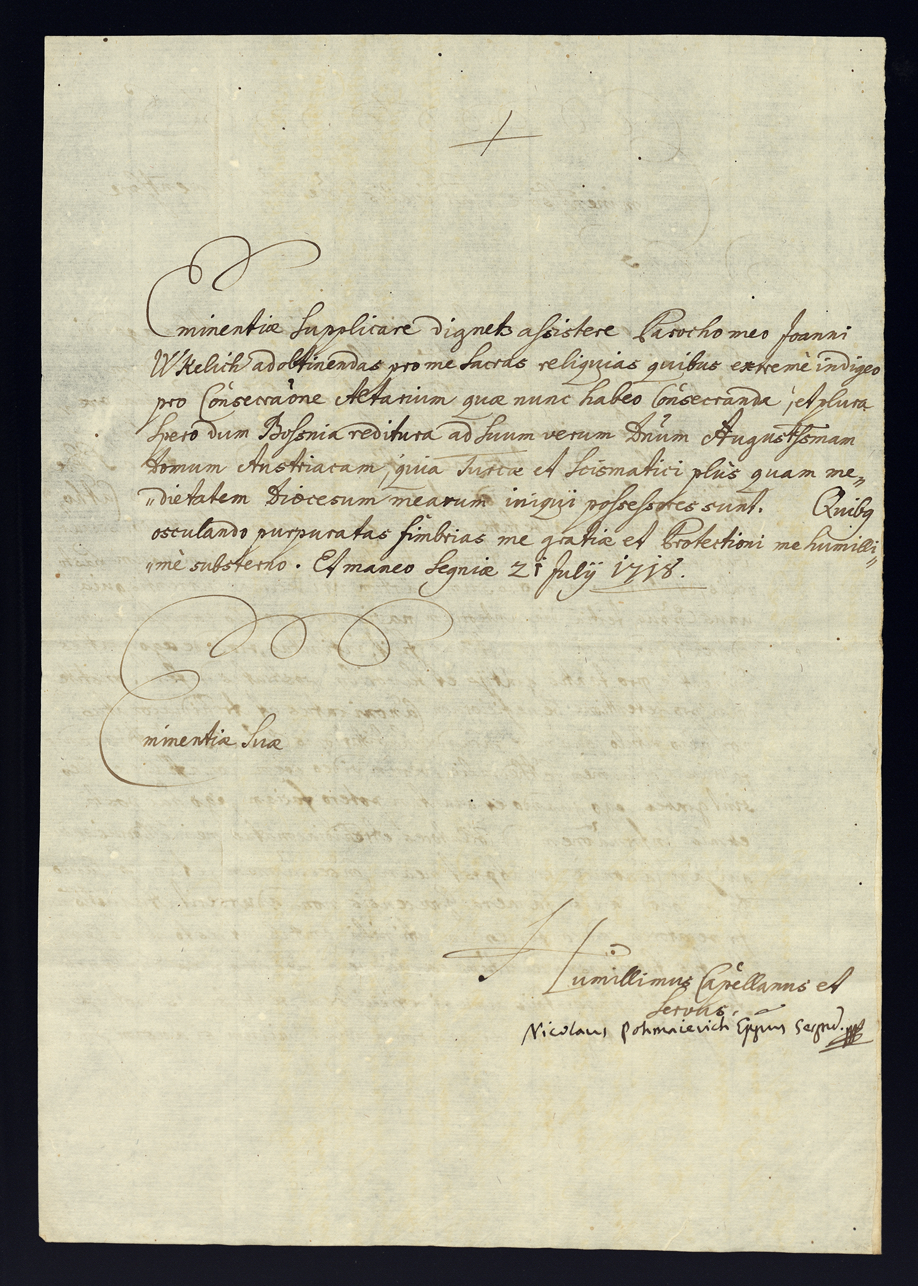 Eminentiæ supplicare dignetʒ assistere Parocho meo Joanni
WKelich ad obtinendas pro me sacras reliquias quibus extremè indigeo
pro Consecraõne Aetarium quæ nunc habeo Consecranda, et plura
spero dum Bossnia reditura ad suum verum Dñum Augustssmam
Domum Austriacam, quia Turcæ et Scismatici plus quam me„
„dietatem Diœcesum mearum iniqui possessores sunt. Quibq
osculando purpuratas fimbrias me gratiæ et Protectioni me humilli„
„mè substerno. Et maneo Segniæ 21 Julÿ 1718.
Eminentiæ Suæ
Humillimus Capellanus et
servus.
Nicolaus Pohmaievich Eppus Segnd.